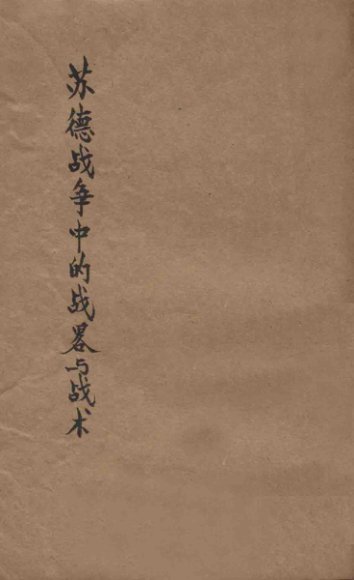 苏德战争中的战畧与战术